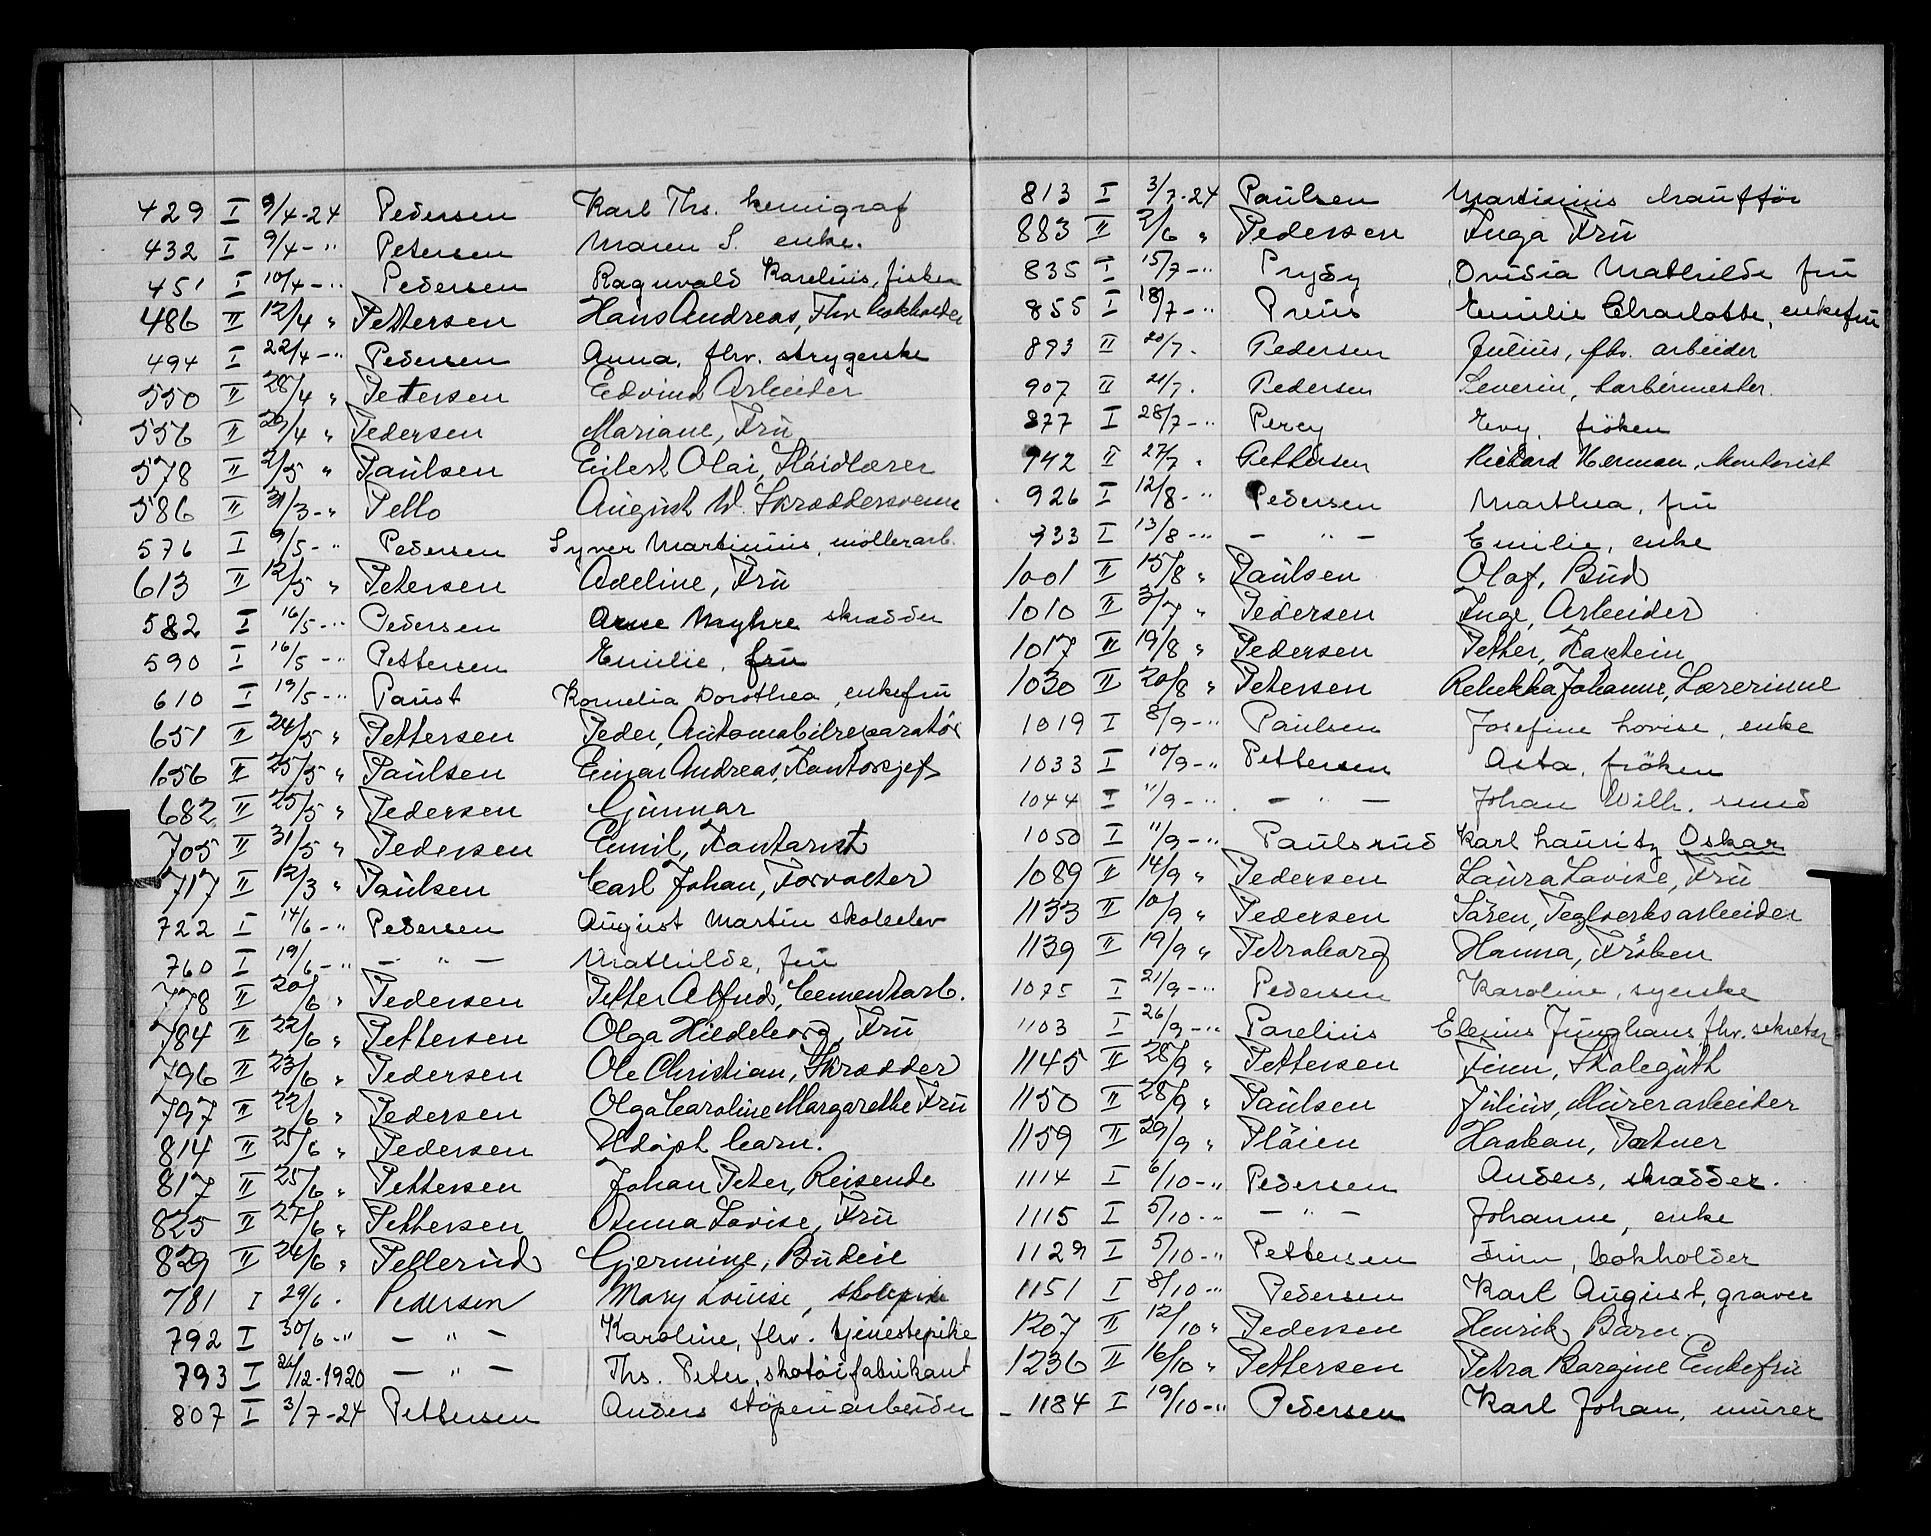 429 I 9/4-24 Pedersen Karl Ths. kemigraf
432 I 9/4-" Petersen Maren S. enke.
451 I 10/4-" Pedersen Ragnvald Karelius, fisker
486 II 12/4 " Pettersen Hans Andreas, Fhv bokholder
494 I 22/4-" Pedersen Anna, fhv. strygerske
550 II 28/4 " Petersen Edvind Arbeider
556 II 29/4 " Pedersen Mariane, Frü
578 II 2/5 " Paulsen Eilert Olai, Slöidlærer
586 II 31/3-" Pello August W. Skræddersvenn
576 I 9/5-" Pedersen Syver Martinius, möllerarb.
613 II 12/5 " Petersen Adeline, Frü
582 I 16/5-" Pedersen Arne Myhre skrædder
590 I 16/5-" Pettersen Emilie, frü
610 I 19/5-" Paust Kornelia Dorothea, enkefrü
651 II 24/5 " Pettersen Peder, Automobilreparatör
656 II 25/5 " Paulsen Einar Andreas, Kontorsjef
682 II 25/5 " Pedersen Günnar
705 II 31/5 " Pedersen Emil, Kontorist
717 II 12/3 " Paulsen Carl Johan, Forvalter
722 I 14/6-" Pedersen August Martin skoleelev
760 I 19/6-" — " — Mathilde, frü
778 II 20/6 " Pedersen Petter Alfred, Cementarb.
784 II 22/6 " Pettersen Olga Hildeborg, Frü
796 II 23/6 " Pedersen Ole Christian, Skrædder
797 II 22/6 " Pedersen Olga Caroline Margarethe Frü
814 II 25/6 " Pedersen Udöpt barn.
817 II 25/6 " Pettersen Johan Peter, Reisende
825 II 27/6 " Pettersen Anna Lovise, Frü
829 II 24/6 " Pellerud Gjermine, Büdeie
781 I 29/6 - Pedersen Mary Louise, skolepike
792 I 30/6-" — " — Karoline, fhv. tjenestepike
793 I 24/12-1920 — " — Ths. Peter, skotöifabrikant
807 I 3/7-24 Pettersen Anders støperiarbeider
813 I 3/7-24 Paulsen Martinius chaufför
883 II 2/6 " Pedersen Inga Frü
835 I 15/7-" Prydz Ovidia Mathilde frü
855 I 18/7-" Preüs Emilie Charlotte, enkefrü
893 II 20/7. Pedersen Julius, fhv. arbeider
907 II 21/7. Pedersen Severin, barbermester.
877 I 28/7-" Percy Evy, fröken
942 II 27/7 . Pettersen Rickard Herman, kontorist
926 I 12/8-" Pedersen Marthea, frü
933 I 13/8-" — " — Emilie, enke
1001 II 15/8 " Paulsen Olaf, Bud
1010 II 3/7 " Pedersen Inge, Arbeider
1017 II 19/8 " Pedersen Petter, Kaptein
1030 II 20/8 " Petersen Rebekka Johanne, Lærerinne
1019 I 8/9-" Paulsen Josefine Lovise, enke
1033 I 10/9-" Pettersen Asta, fröken
1044 I 11/9-" — " — Johan Wilh. smed
1050 I 11/9-" Paulsrud Karl Lauritz Oskar
1089 II 14/9 " Pedersen Laura Lovise, Frü
1133 II 10/9 " Pedersen Sören, Teglverksarbeider
1139 II 19/9 " Petraborg Hanna, Fröken
1075 I 21/9-" Pedersen Karoline, syerske
1103 I 26/9-" Parelius Elenius Junghans, fhv. sekretær
1145 II 28/9 " Pettersen Finn, Skolegütt
1150 II 28/9 " Paulsen Julius, Mürerarbeider
1159 II 29/9 " Pläien Haakon, Partner
1114 I 6/10-" Pedersen Anders, skrædder.
1115 I 5/10-" — " — Johanne, enke
1129 I 5/10-" Pettersen Finn, bokholder
1151 I 8/10-" Pedersen Karl August, graver
1207 II 12/10 " Pedersen Henrik, Barn
1236 II 16/10 " Pettersen Petra Bargine Enkefrü
1184 I 19/10-" Pedersen Karl Johan, murer